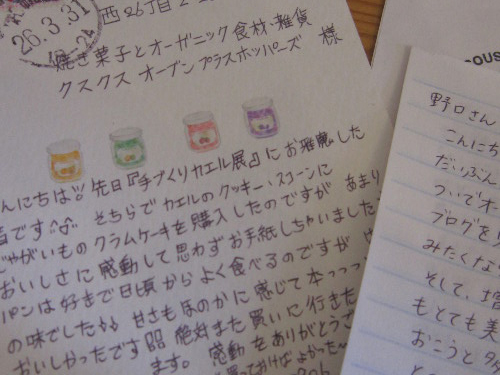 26.3.31
西26丁目2
焼き菓子とオーガニック食材・雑貨
クスクス オーブン プラスホッパーズ 様
んにちは!! 先日『手づくりカエル展』にお邪魔した
者です^o^ そちらで カエルのクッキー・スコーンに
じゃがいもの クラムケーキを購入したのですが あまり
おいしさに 感動して 思わずお手紙しちゃいました
パンは好きで 日頃からよく食べるのですが
の味でした♪♪ 甘さもほのかに感じて 本っっっ
おいしかったです 絶対また買いに行きた
ます。 感動をありがとうご
買っておけばよかった〜
野口さん
こんにち
だいぶん
ついでオー
ブログを
みたくな
そして、増
もとても美
おこうと夕
OUS